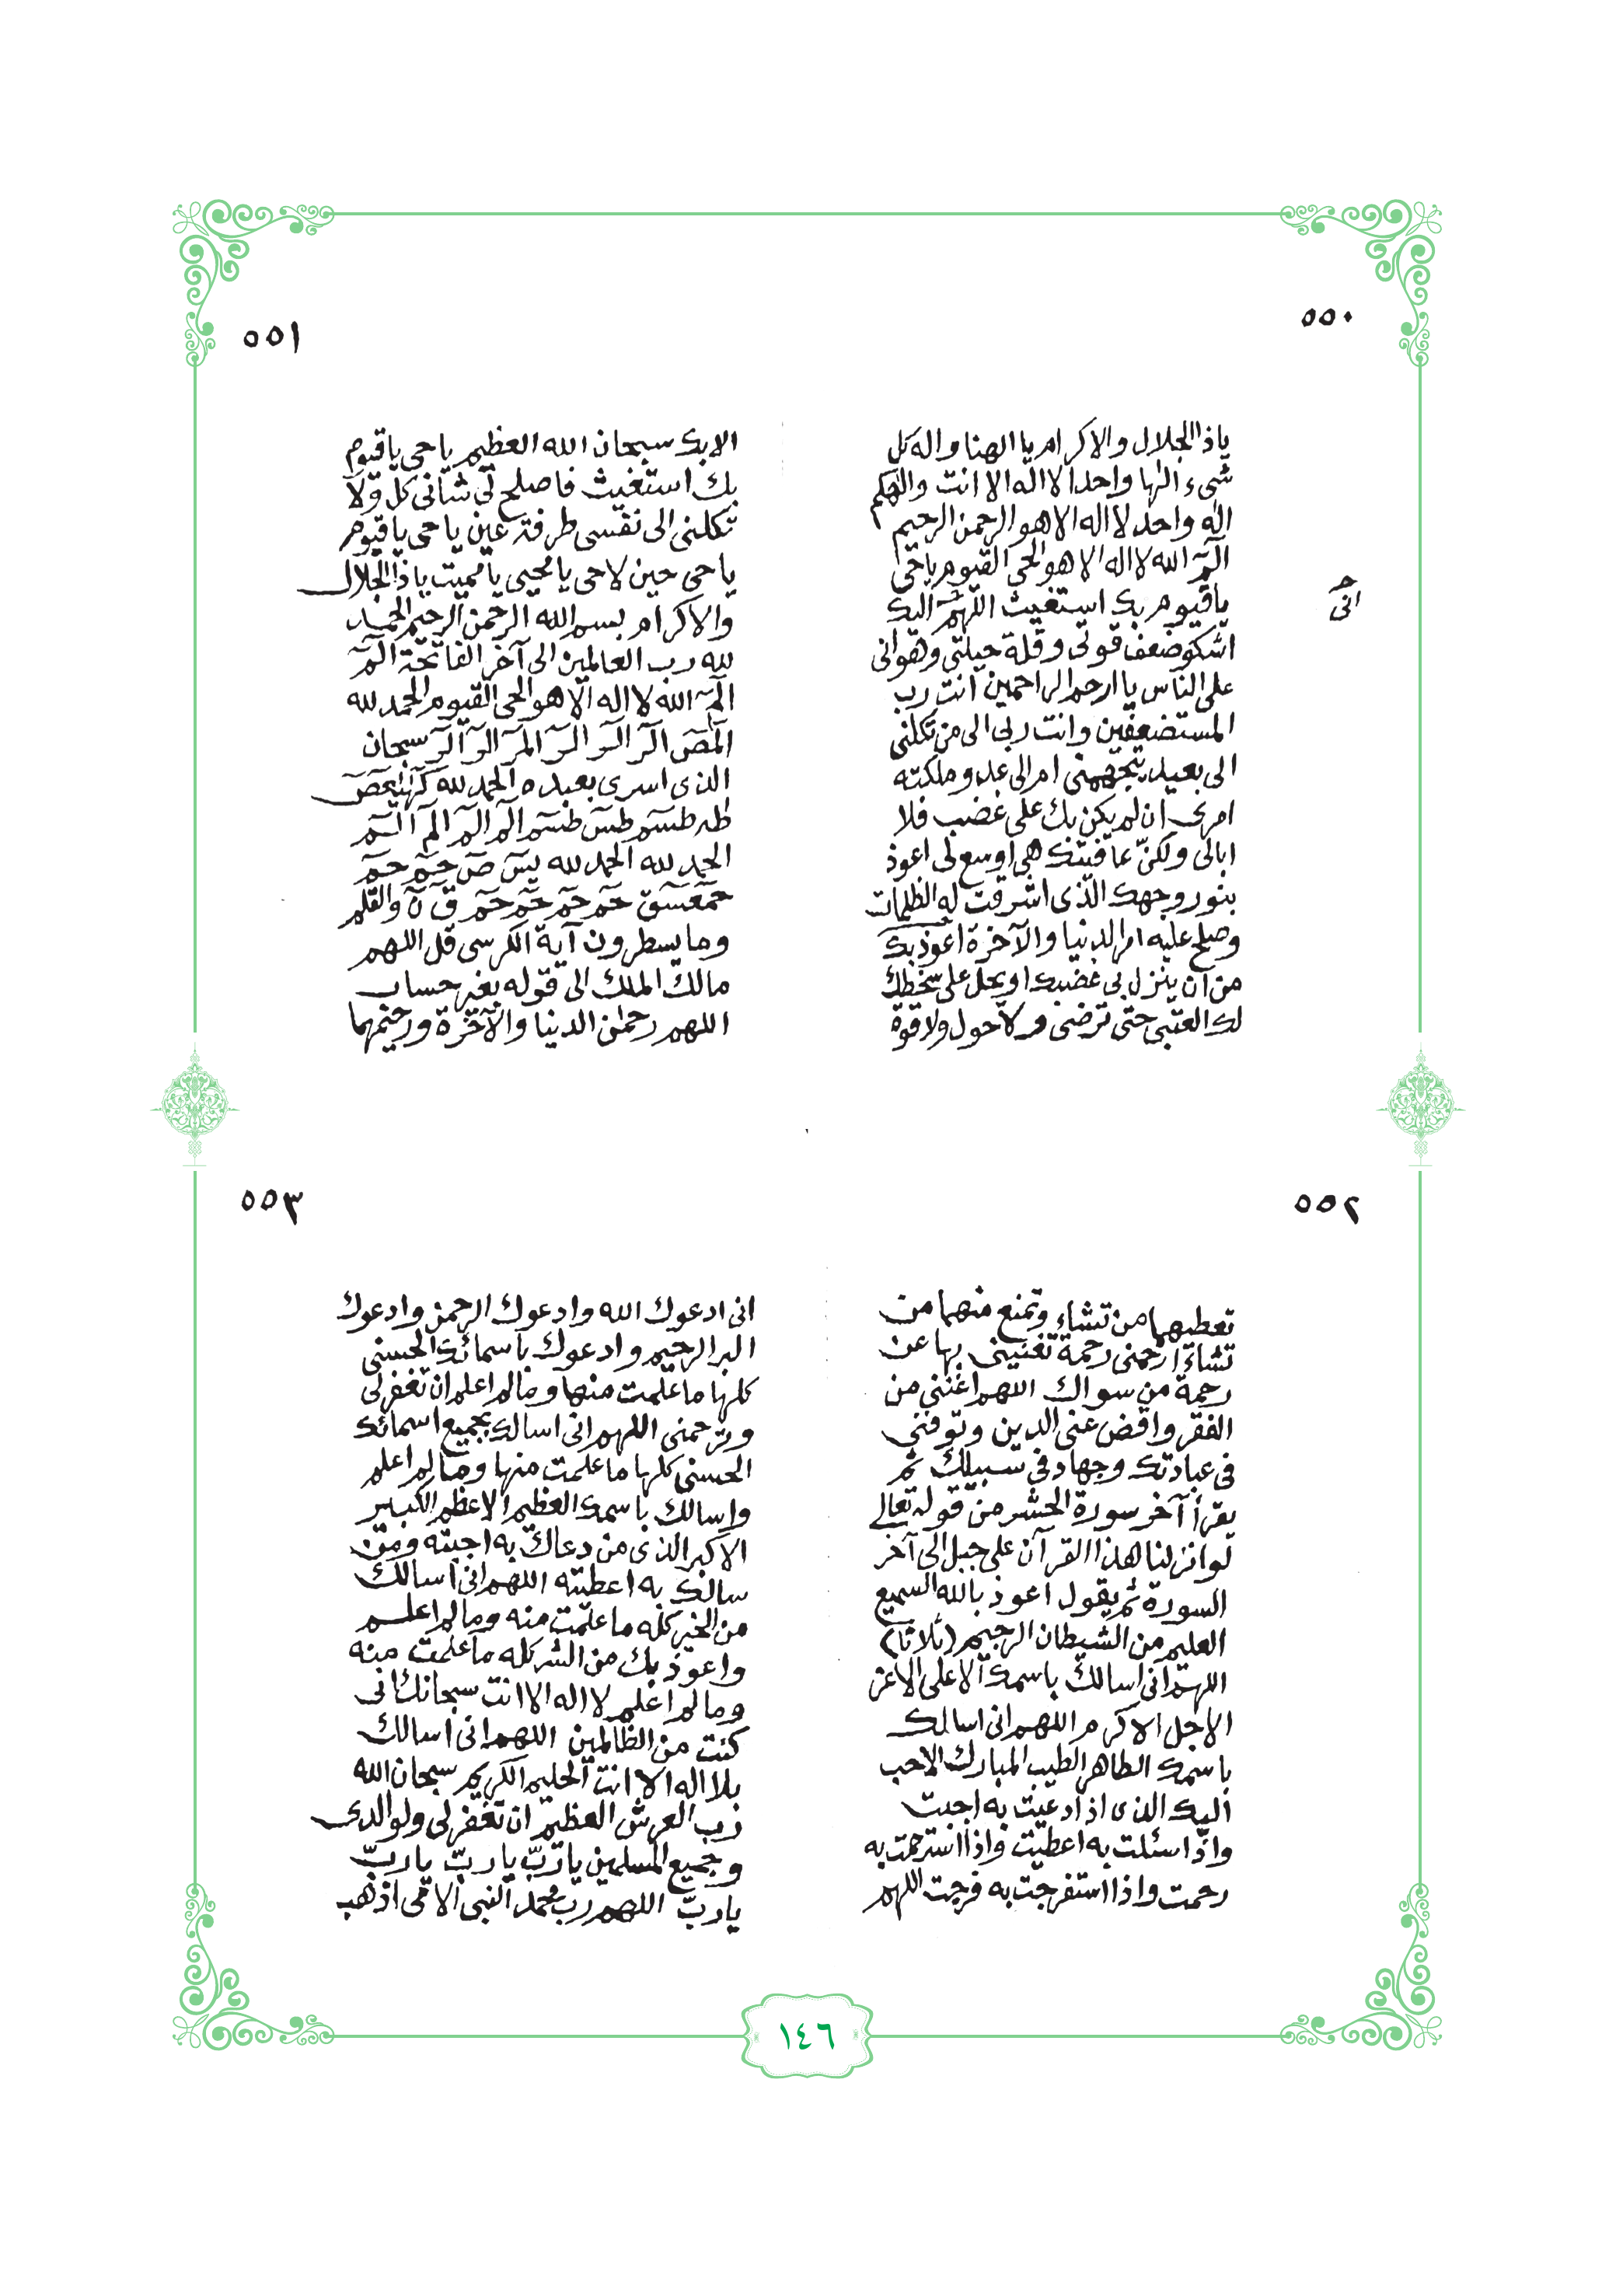 ٥٥٠
ياذا الجلال والاكرام يا الهنا واله كل
شىء الٰها واحدا لا اله الا انت والٰهكم
اله واحد لا اله الا هو الرحمن الرحيم
الٓمٓ الله لا اله الا هو الحي القيوم ياحى
ياقيوم بك استغيث اللهم اليك
انى
اشكو ضعف قوتى وقلة حيلتى وهوانى
على الناس يا ارحم الراحمين انت رب
المستضعفين وانت ربى الى من تكلنى
الى بعيد يتجهمنى ام الى عدو ملكته
امرى ان لم يكن بك على غضب فلا
ابالى ولكنّ عافيتك هى اوسع لى اعوذ
بنور وجهك الذى اشرقت له الظلمات
وصلح عليه امر الدنيا والآخرة اعوذ بك
من ان ينزل بى غضبك او يحل على سخطك
لك العتبى حتى ترضى ولا حول ولا قوة
٥٥١
الا بك سبحان الله العظيم ياحى ياقيوم
بك استغيث فاصلح لى شانى كله ولا
تكلنى الى نفسى طرفة عين ياحى ياقيوم
ياحى حين لاحى يا محيى يا مميت ياذا الجلال
والاكرام بسم الله الرحمن الرحيم الحمد
لله رب العالمين الى آخر الفاتحة الٓمٓ
الٓمٓ الله لا اله الا هو الحى القيوم الحمد لله
الٓمٓصٓ الٓرٰ الٓرٰ الٓرٰ الٓمٓرٰ الٓرٰ الٓرٰ سبحان
الذى اسرى بعبده الحمد لله كٓهٰيٰعٓصٓ
طٰه طسٓمٓ طسٓ طسٓمٓ الٓمٓ الٓمٓ الٓمٓ الٓمٓ
الحمد لله الحمد لله يسٓ صٓ حمٓ حمٓ
حمٓعٓسٓقٓ حمٓ حمٓ حمٓ حمٓ قٓ نٓ والقلم
وما يسطرون آية الكرسى قل اللهم
مالك الملك الى قوله بغير حساب
اللهم رحمٰن الدنيا والآخرة ورحيمهما
٥٥٢
تعطيهما من تشاء وتمنع منهما من
تشاء ارحمنى رحمة تغنينى بها عن
رحمة من سواك اللهم اغننى من
الفقر واقض عنى الدين وتوفنى
فى عبادتك وجهاد فى سبيلك ثم
يقرأ آخر سورة الحشر من قوله تعالى
لو انزلنا هذا القرآن على جبل الى آخر
السورة ثم يقول اعوذ بالله السميع
العليم من الشيطان الرجيم (ثلاثا)
اللهم انى اسالك باسمك الاعلى الاعز
الاجل الاكرم اللهم انى اسالك
باسمك الطاهر الطيب المبارك الاحب
اليك الذى اذا دعيت به اجبت
واذا سئلت به اعطيت واذا استرحمت به
رحمت واذا استفرجت به فرجت اللهم
٥٥٣
انى ادعوك الله وادعوك الرحمن وادعوك
البر الرحيم وادعوك باسمائك الحسنى
كلها ما علمت منها وما لم اعلم ان تغفر لى
وترحمنى اللهم انى اسالك بجميع اسمائك
الحسنى كلها ما علمت منها وما لم اعلم
واسالك باسمك العظيم الاعظم الكبير
الاكبر الذى من دعاك به اجبته ومن
سالك به اعطيته اللهم انى اسالك
من الخير كله ما علمت منه وما لم اعلم
واعوذ بك من الشر كله ما علمت منه
وما لم اعلم لا اله الا انت سبحانك انى
كنت من الظالمين اللهم انى اسالك
بلا اله الا انت الحليم الكريم سبحان الله
رب العرش العظيم ان تغفر لى ولوالدى
وجميع المسلمين ياربّ ياربّ ياربّ
ياربّ اللهم رب محمد النبى الامى اذهب
١٤٦